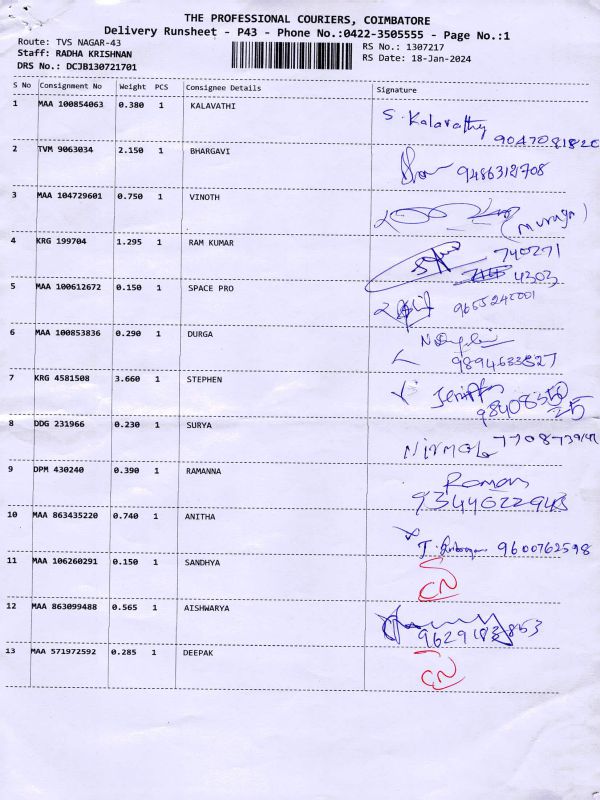 THE PROFESSIONAL COURIERS, COIMBATORE
Delivery Runsheet - P43 - Phone No.:0422-3505555 - Page No.:1
Route: TVS NAGAR-43 RS No.: 1307217
Staff: RADHA KRISHNAN RS Date: 18-Jan-2024
DRS No.: DCJB130721701
S No Consignment No Weight PCS Consignee Details Signature
1 MAA 100854063 0.380 1 KALAVATHI S. Kalavathy
9047081820
2 TVM 9063034 2.150 1 BHARGAVI 9486312708
3 MAA 104729601 0.750 1 VINOTH (Murugan)
4 KRG 199704 1.295 1 RAM KUMAR 740271
4303
5 MAA 100612672 0.150 1 SPACE PRO 9655240001
6 MAA 100853836 0.290 1 DURGA
9894633827
7 KRG 4581508 3.660 1 STEPHEN
8 DDG 231966 0.230 1 SURYA Nirmala
9 DPM 430240 0.390 1 RAMANNA Raman
10 MAA 863435220 0.740 1 ANITHA 9600762598
11 MAA 106260291 0.150 1 SANDHYA CN
12 MAA 863099488 0.565 1 AISHWARYA
13 MAA 571972592 0.285 1 DEEPAK CN